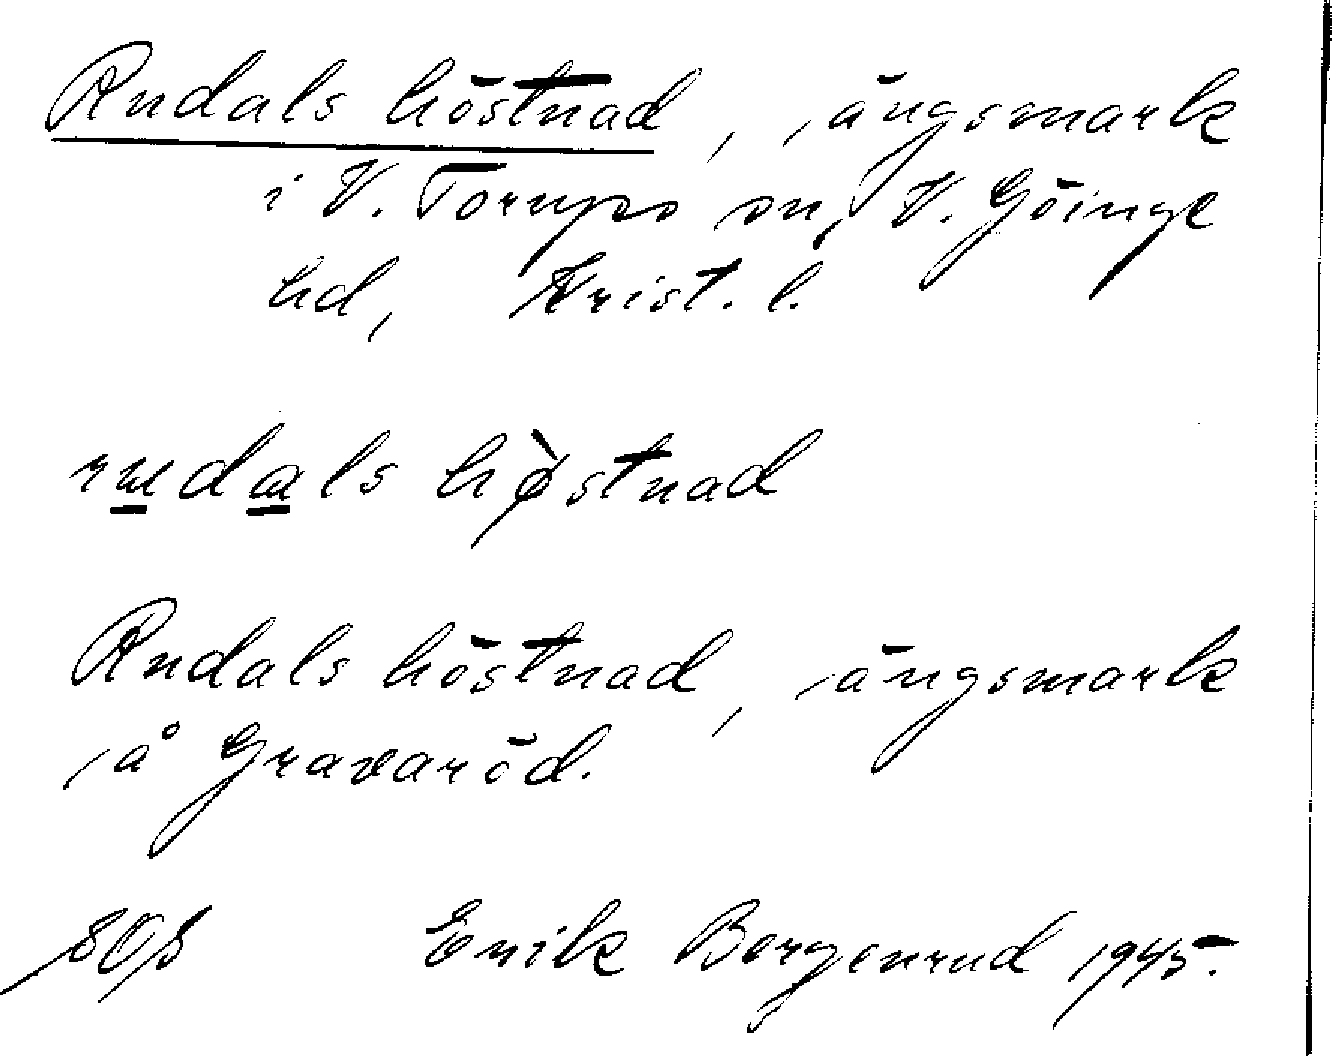 Rudals höstnad, ängsmark
i V. Torups sn, V. Göinge
hd, Krist. l.
rudals hø̀stnad
Rudals höstnad, ängsmark
å Gravaröd.
Erik Bergenrud 1945.